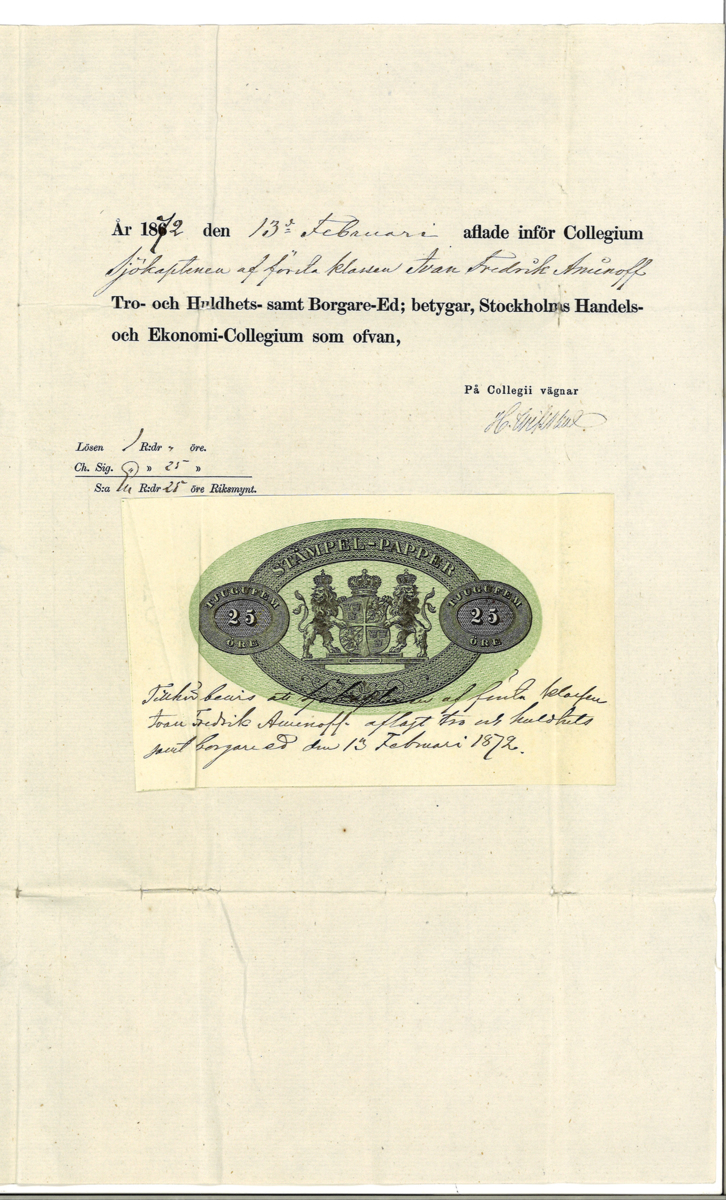 År 1872 den 13de Februari aflade inför Collegium
Sjökaptenen af första klassen Ivan Fredrik Aminoff
Tro- och Huldhets- samt Borgare-Ed; betygar, Stockholms Handels-
och Ekonomi-Collegium som ofvan,
På Collegii vägnar
H.
Lösen 1 R:dr " öre.
Ch. Sig. " » 25 »
S:a 1 R:dr 25 öre Riksmynt.
STÄMPEL-PAPPER
TJUGUFEM
25
ÖRE
TJUGUFEM
25
ÖRE
bevis att Sjökaptenen af första klassen
Ivan Fredrik Aminoff aflagt tro och huldhets
samt borgare ed den 13 Februari 1872.